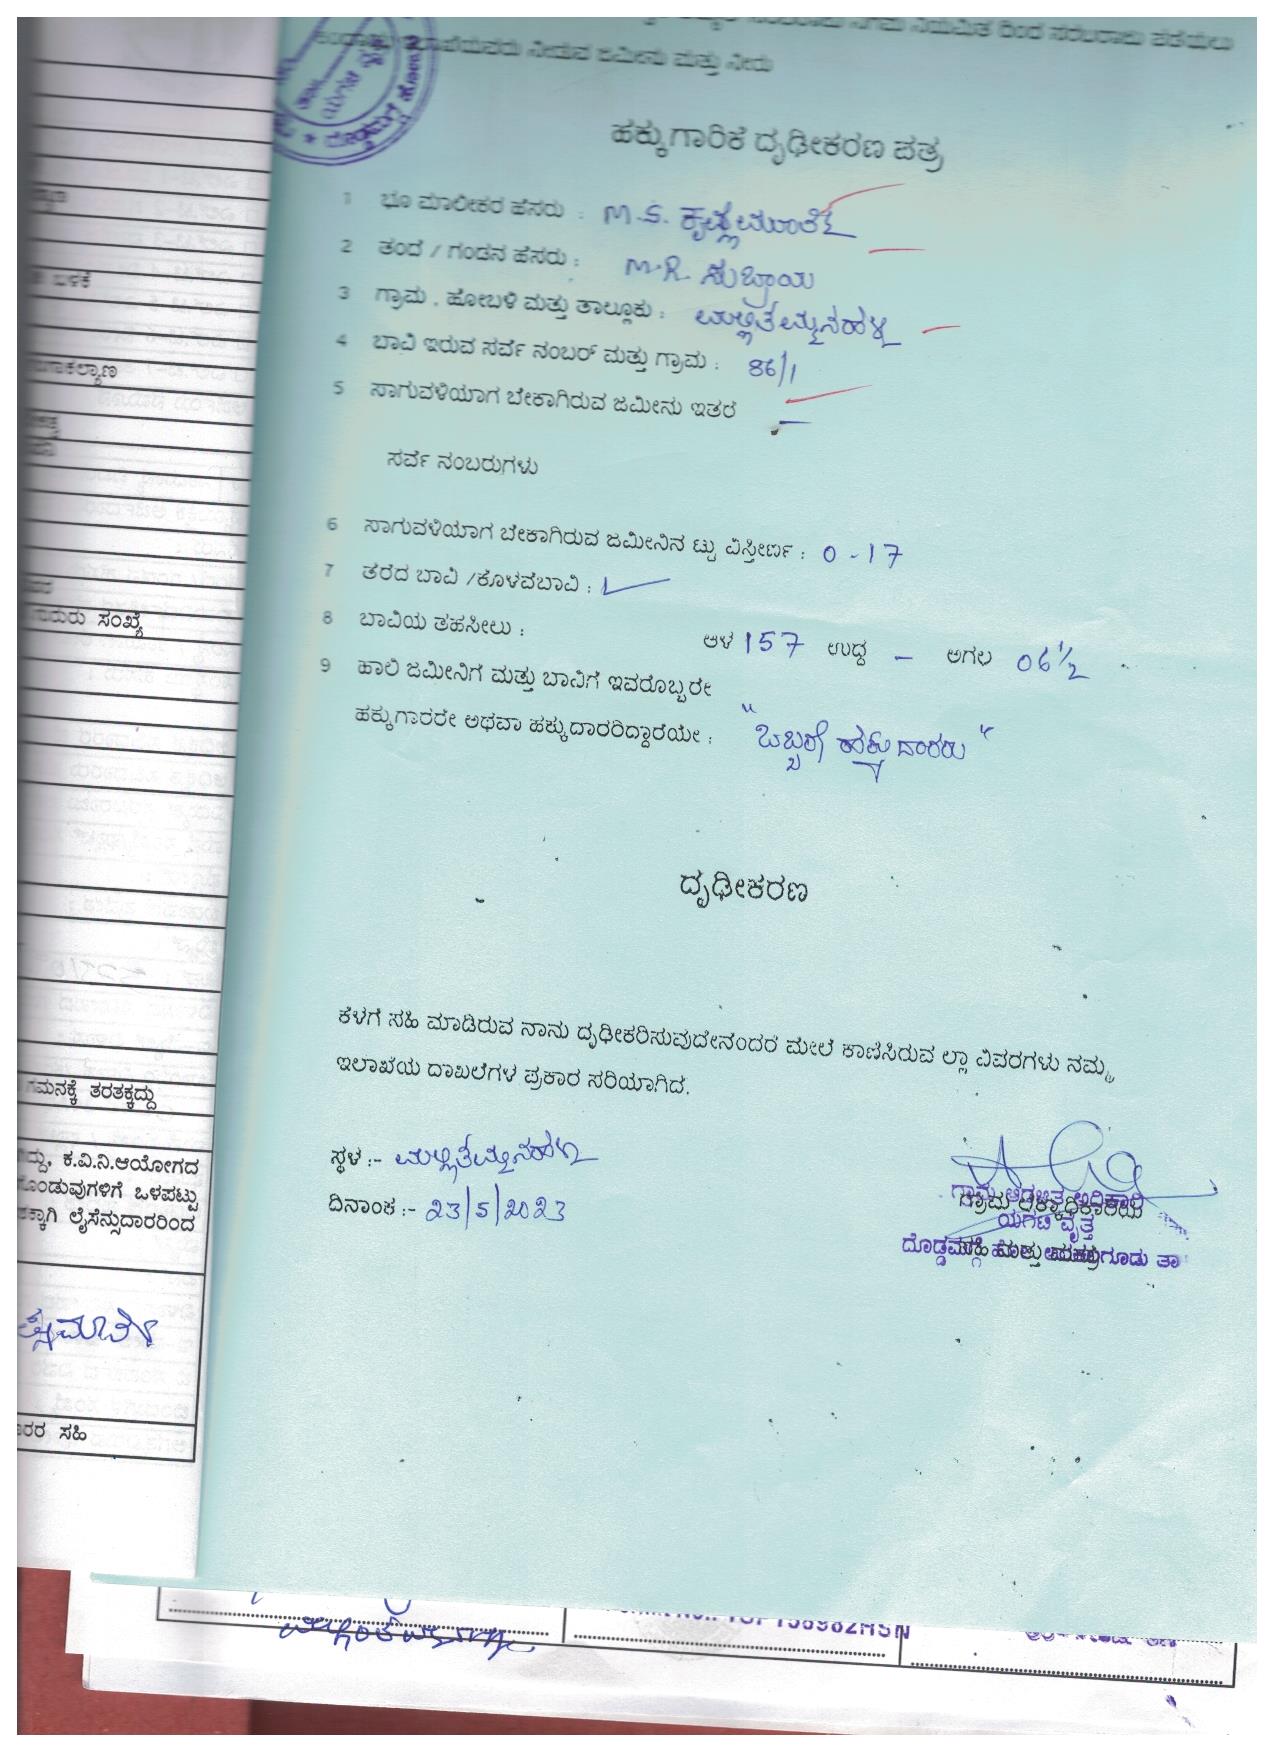 ನಿಗಮ ನಿಯಮಿತ ದಿಂದ ಸರಬರಾಜು ಪಡೆಯಲು
ನೀಡುವ ಜಮೀನು ಮತ್ತು ನೀರು
ಹಕ್ಕುಗಾರಿಕೆ ದೃಢೀಕರಣ ಪತ್ರ
1 ಭೂ ಮಾಲೀಕರ ಹೆಸರು : M.S. ಕೃಷ್ಣಮೂರ್ತಿ
2 ತಂದೆ / ಗಂಡನ ಹೆಸರು : M.R. ಸುಬ್ರಾಯ
3 ಗ್ರಾಮ , ಹೋಬಳಿ ಮತ್ತು ತಾಲ್ಲೂಕು : ಮಲ್ಲಿತಿಮ್ಮನಹಳ್ಳಿ
4 ಬಾವಿ ಇರುವ ಸರ್ವೆ ನಂಬರ್ ಮತ್ತು ಗ್ರಾಮ : 86/1
5 ಸಾಗುವಳಿಯಾಗ ಬೇಕಾಗಿರುವ ಜಮೀನು ಇತರ –
ಸರ್ವೆ ನಂಬರುಗಳು
6 ಸಾಗುವಳಿಯಾಗ ಬೇಕಾಗಿರುವ ಜಮೀನಿನ ಟ್ಟು ವಿಸ್ತೀರ್ಣ : 0-17
7 ತೆರೆದ ಬಾವಿ /ಕೊಳವೆಬಾವಿ :
8 ಬಾವಿಯ ತಹಸೀಲು : ಆಳ 157 ಉದ್ದ – ಅಗಲ 06½
9 ಹಾಲಿ ಜಮೀನಿಗೆ ಮತ್ತು ಬಾವಿಗೆ ಇವರೊಬ್ಬರೇ
ಹಕ್ಕುಗಾರರೇ ಅಥವಾ ಹಕ್ಕುದಾರರಿದ್ದಾರೆಯೇ : "ಒಬ್ಬರೆ ಹಕ್ಕುದಾರರು"
ದೃಢೀಕರಣ
ಕೆಳಗೆ ಸಹಿ ಮಾಡಿರುವ ನಾನು ದೃಢೀಕರಿಸುವುದೇನಂದರೆ ಮೇಲೆ ಕಾಣಿಸಿರುವ ಲ್ಲಾ ವಿವರಗಳು ನಮ್ಮ
ಇಲಾಖೆಯ ದಾಖಲೆಗಳ ಪ್ರಕಾರ ಸರಿಯಾಗಿದೆ.
ಸ್ಥಳ :- ಮಲ್ಲಿತಿಮ್ಮನಹಳ್ಳಿ
ದಿನಾಂಕ :- 23/5/2023
ಗ್ರಾಮ ಆಡಳಿತ ಅಧಿಕಾರಿ
ಗ್ರಾಮ ಲೆಕ್ಕಾಧಿಕಾರಿಯ
ಯಗಟಿ ವೃತ್ತ
ಬಳಕೆ
ಗಾಕಲ್ಯಾಣ
ಸಂಖ್ಯೆ
ಗಮನಕ್ಕೆ ತರತಕ್ಕದ್ದು
ಕ.ವಿ.ನಿ.ಆಯೋಗದ
ಗೊಂಡುವುಗಳಿಗೆ ಒಳಪಟ್ಟು
ಲೈಸೆನ್ಸುದಾರರಿಂದ
ಸಹಿ